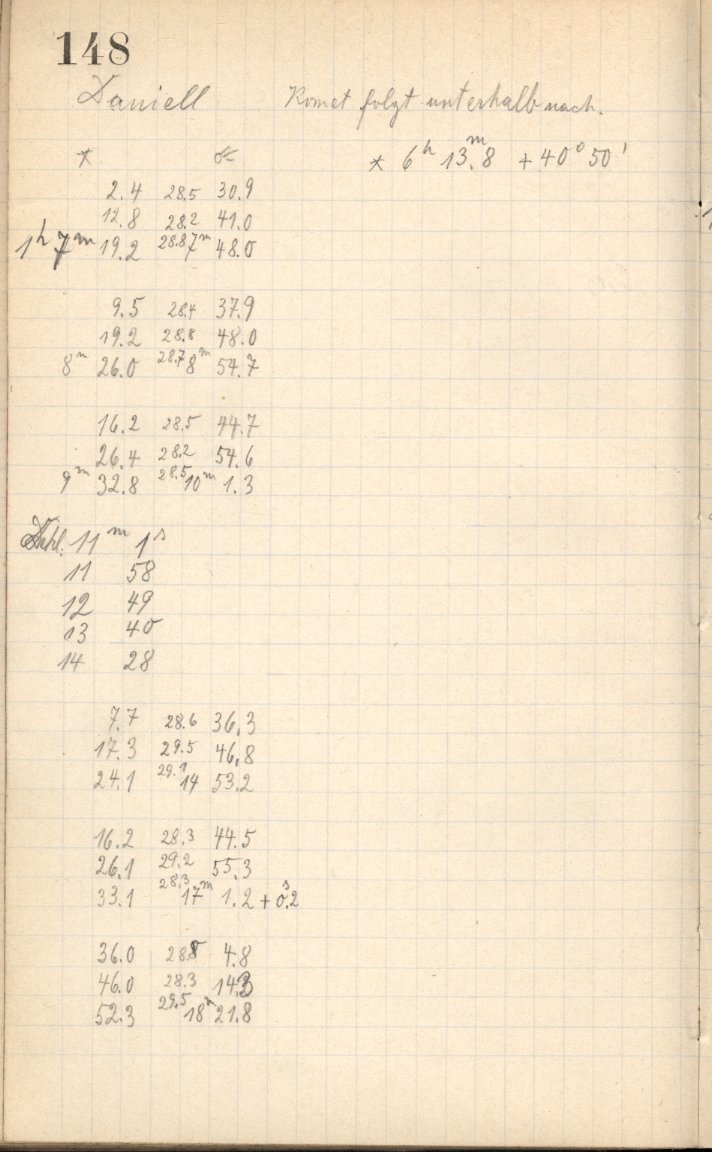 148
Daniell Komet folgt unterhalb nach.
* ☄ * 6h 13m.8 +40° 50'
2.4 28.5 30.9
12.8 28.2 41.0
1h 7m 19.2 28.8 7m 48.0
9.5 28.4 37.9
19.2 28.8 48.0
8m 26.0 28.7 8m 54.7
16.2 28.5 44.7
26.4 28.2 54.6
9m 32.8 28.5 10m 1.3
11m 1s
11 58
12 49
13 40
14 28
7.7 28.6 36.3
17.3 29.5 46.8
24.1 29.1 14 53.2
16.2 28.3 44.5
26.1 29.2 55.3
33.1 28.3 17m 1.2 + 0s.2
36.0 28.8 4.8
46.0 28.3 14.3
52.3 29.5 18m 21.8